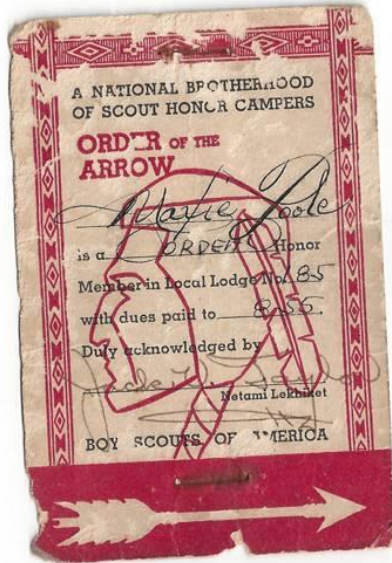 A NATIONAL BROTHERHOOD
OF SCOUT HONOR CAMPERS
ORDER OF THE
ARROW
Poole
is a ORDEAL Honor
Member in Local Lodge No. 85
with dues paid to 8-55.
Duly acknowledged by
Jack
Netami Lekhiket
BOY SCOUTS OF AMERICA